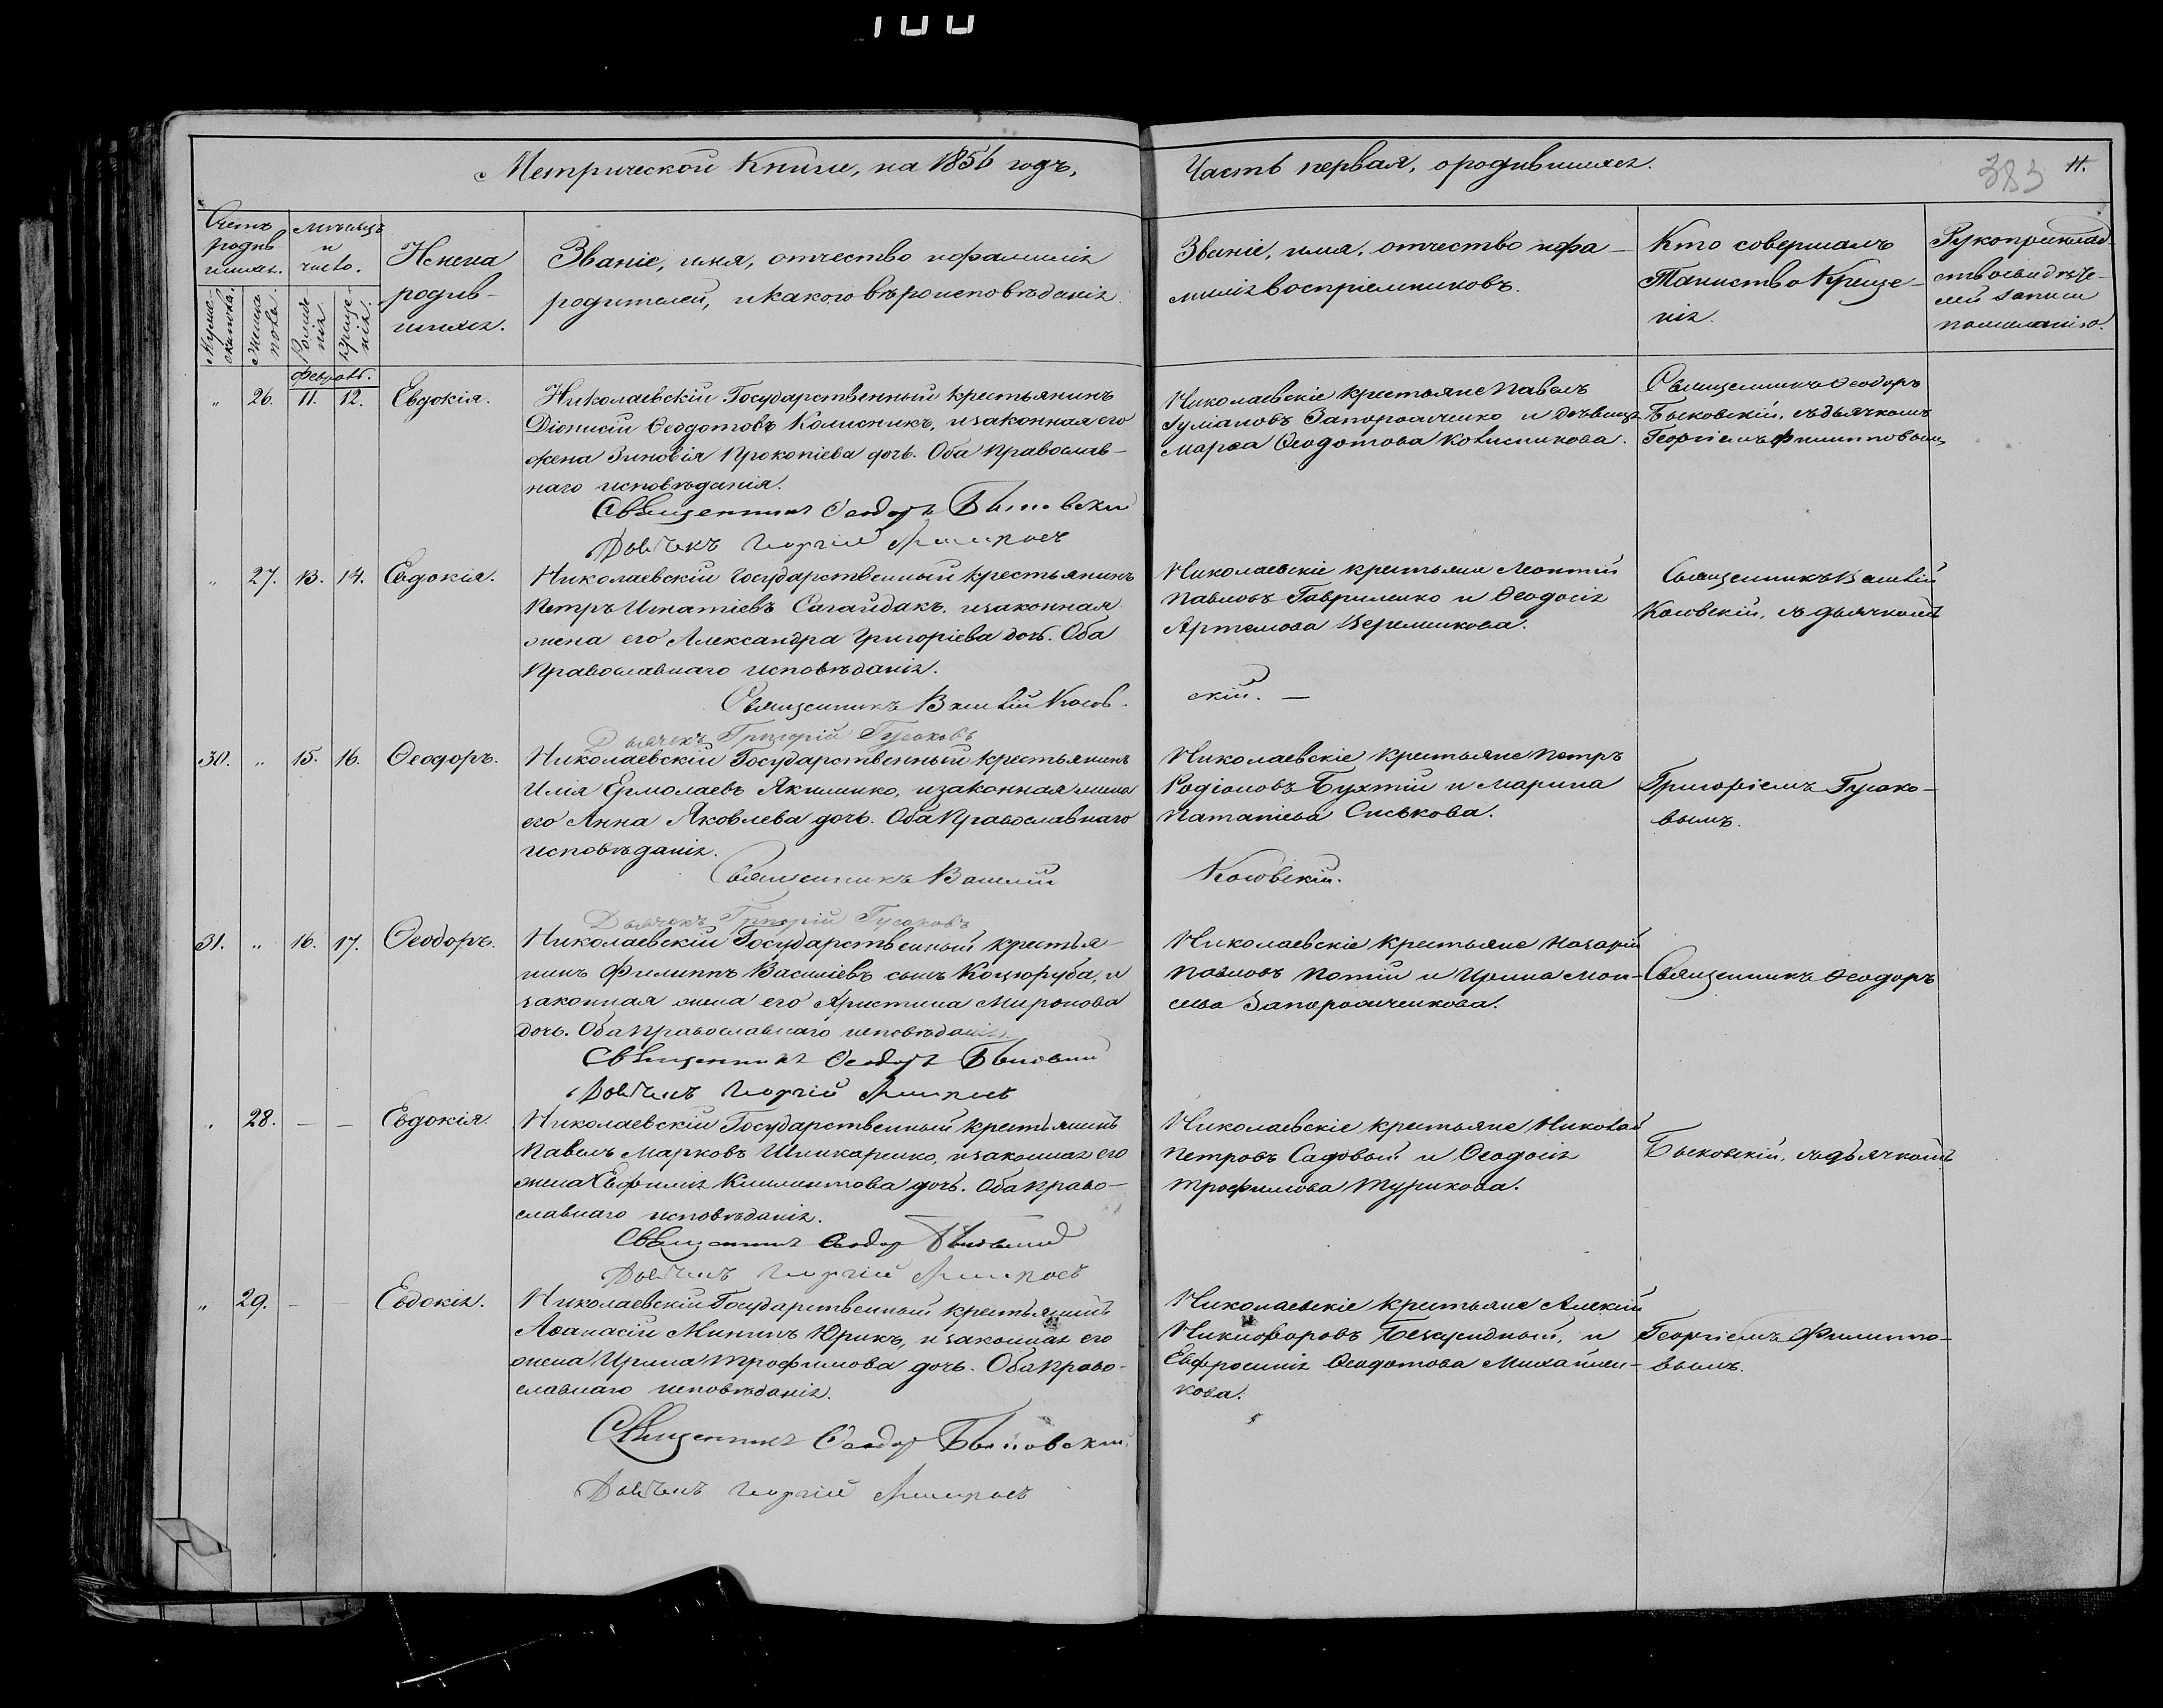 100
Метрической Книги, на 1856 годъ,
Часть первая, о родившихся.
383 11.
Счетъ родившихся.
Мужескаго. Женска пола.
Мѣсяцъ и число.
Рожденія. Крещенія.
Имена родившихся.
Званіе, имя, отчество и фамилія
родителей, и какого вѣроисповѣданія.
Званіе, имя, отчество и фамилія воспріемниковъ.
Кто совершалъ
Таинство Крещенія.
Рукоприкладство свидѣтелей записи
по желанію.
Февраль.
" 26. 11. 12. Евдокія.
Николаевскій Государственный крестьянинъ
Діонисій Ѳеодотовъ Колисникъ, и законная его
жена Зиновія Прокопіева дочь. Оба православ-
наго исповѣданія.
Священникъ Ѳеодоръ Быковскій
Дьячекъ Георгій
Николаевскіе крестьяне Павелъ
Запорожченко и дѣвица
Марѳа Ѳеодотова Колисникова.
Священникъ Ѳеодоръ
Быковскій, съ дьячкомъ
Георгіемъ Филипповымъ
" 27. 13. 14. Евдокія.
Николаевскій Государственный крестьянинъ
Петръ Игнатіевъ Сагайдакъ, и законная
жена его Александра Григоріева дочь. Оба
Православнаго исповѣданія.
Священникъ Василій Косов-
скій. —
Дьячекъ Григорій Гусаковъ
Николаевскіе крестьяне Леонтій
Павловъ Гавриленко и Ѳеодосія
Артемова Веремѣйкова.
Священникъ Василій
Косовскій, съ дьячкомъ
30. " 15. 16. Ѳеодоръ.
Николаевскій Государственный крестьянинъ
Илія Ермолаевъ Якименко, и законная жена
его Анна Яковлева дочь. Оба Православнаго
исповѣданія.
Священникъ Василій
Косовскій.
Дьячекъ Григорій Гусаковъ
Николаевскіе крестьяне Петръ
Родіоновъ Бухтій и Марина
Потапіева Сиськова.
Григоріемъ Гусако-
вымъ.
31. " 16. 17. Ѳеодоръ.
Николаевскій Государственный крестья-
нинъ Филиппъ Василіевъ сынъ Коцюруба, и
законная жена его Христина Миронова
дочь. Оба православнаго исповѣданія
Священникъ Ѳеодоръ Быковскій
Дьячекъ Георгій
Николаевскіе крестьяне Назарій
Павловъ Потій и Ирина Мои-
сеева Запорожченкова.
Священникъ Ѳеодоръ
" 28. — — Евдокія.
Николаевскій Государственный крестьянинъ
Павелъ Марковъ Шинкаренко, и законная его
жена Евфимія Климентова дочь. Оба право-
славнаго исповѣданія.
Священникъ Ѳеодоръ Быковскій
Дьячекъ Георгій
Николаевскіе крестьяне Николай
Петровъ Садовый и Ѳеодосія
Трофимова Турикова.
Быковскій, съ дьячкомъ
" 29. — — Евдокія.
Николаевскій Государственный крестьянинъ
Аѳанасій Мининъ Юрикъ, и законная его
жена Ирина Трофимова дочь. Оба право-
славнаго исповѣданія.
Священникъ Ѳеодоръ Быковскій
Дьячекъ Георгій
Николаевскіе крестьяне Алексій
Никифоровъ и
Евфросинія Ѳеодотова Михайлен-
кова.
Георгіемъ Филиппо-
вымъ.